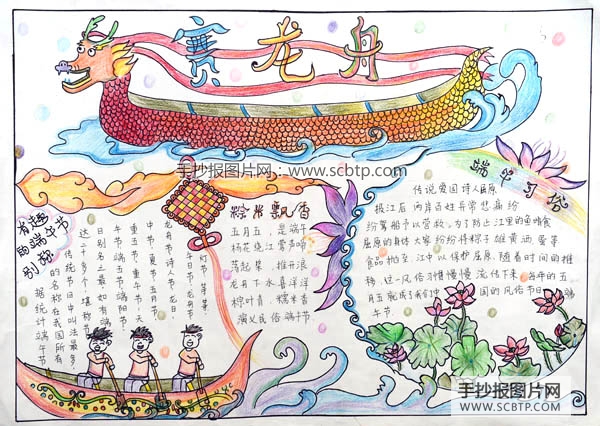 赛龙舟
手抄报图片网：www.scbtp.com
有趣
的端午节
别称
据统计端午节
的名称在我国所有
传统节日中叫法最多，
达二十多个，堪称节
日别名之最。如有端
午节、端五节、端阳节、
重五节、重午节、
中节、夏节、五月节、
龙舟节、诗人节、龙日、
午日节、
灯节、等等。
粽米飘香
五月五，是端午
杨花绕江莺声啼
荡起桨，推开浪
龙舟下水喜洋洋
粽叶青，糯米香
演义民俗端午节
端午习俗
传说爱国诗人屈原
投江后 两岸百姓非常悲 纷
纷驾船予以营救，为了防止江里的鱼 食
屈原的身体大家纷纷将粽子雄黄酒、蛋等
食品抛至江中以保护屈原。随着时间的推
移，这一风俗习惯慢慢流传下来，每年的五
月五就成了我们中国的风俗节日—端
午节
手抄报图片网
WWW.SCBTP.COM